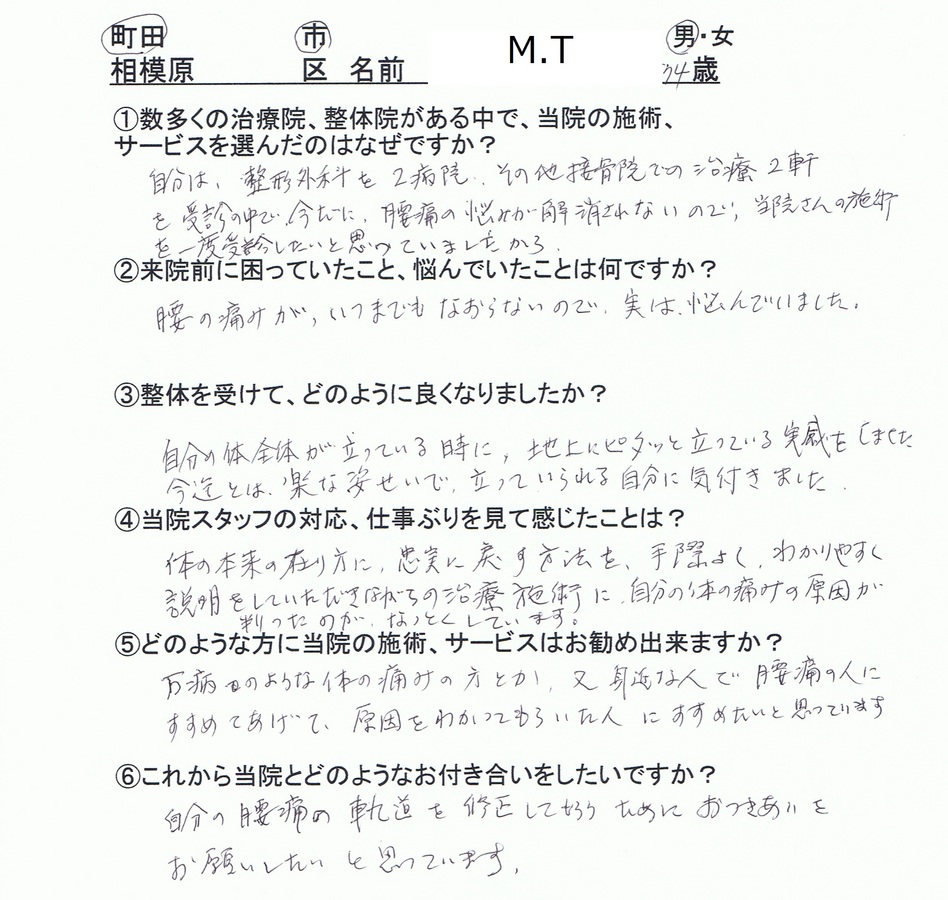 町田 市 M.T 男・女
相模原 区 名前 34歳
①数多くの治療院、整体院がある中で、当院の施術、
サービスを選んだのはなぜですか？
自分は、整形外科を2病院、その他接骨院での治療2軒
を受診の中で、今だに、腰痛の悩みが解消されないので、当院さんの施術
を一度受診したいと思っていましたから。
②来院前に困っていたこと、悩んでいたことは何ですか？
腰の痛みが、いつまでもなおらないので、実は、悩んでいました。
③整体を受けて、どのように良くなりましたか？
自分の体全体が立っている時に、地上にピタッと立っている実感をしました
今迄とは、楽な姿せいで、立っていられる自分に気付きました.
④当院スタッフの対応、仕事ぶりを見て感じたことは？
体の本来の在り方に、忠実に戻す方法を、手際よく、わかりやすく
説明をしていただきながらの治療施術に、自分の体の痛みの原因が
判ったのが、なっとくしています。
⑤どのような方に当院の施術、サービスはお勧め出来ますか？
のような体の痛みの方とか、又身近な人で腰痛の人に
すすめてあげて、原因をわかってもらいた人にすすめたいと思っています
⑥これから当院とどのようなお付き合いをしたいですか？
自分の腰痛の軌道を修正して ために おつきあいを
お願いしたいと思っています.